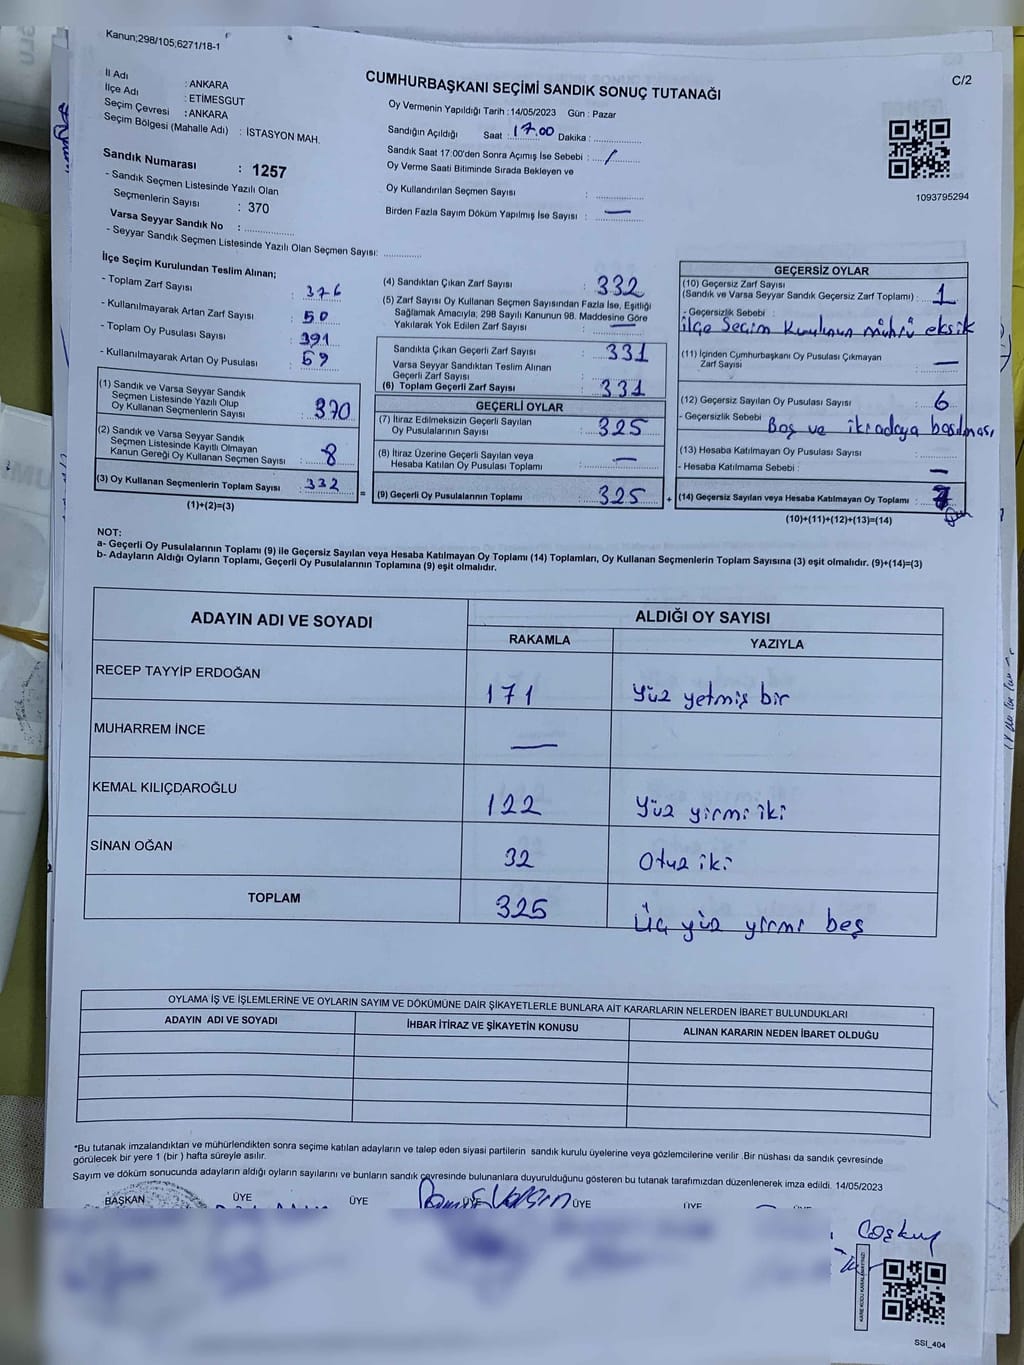 Kanun;298/105;6271/18-1
C/2
CUMHURBAŞKANI SEÇİMİ SANDIK SONUÇ TUTANAĞI
İl Adı : ANKARA
İlçe Adı : ETİMESGUT
Seçim Çevresi : ANKARA
Seçim Bölgesi (Mahalle Adı) : İSTASYON MAH.
Sandık Numarası : 1257
- Sandık Seçmen Listesinde Yazılı Olan
Seçmenlerin Sayısı : 370
Varsa Seyyar Sandık No :
- Seyyar Sandık Seçmen Listesinde Yazılı Olan Seçmen Sayısı:
Oy Vermenin Yapıldığı Tarih : 14/05/2023 Gün : Pazar
Sandığın Açıldığı Saat : 17.00 Dakika :
Sandık Saat 17:00'den Sonra Açımış İse Sebebi : /
Oy Verme Saati Bitiminde Sırada Bekleyen ve
Oy Kullandırılan Seçmen Sayısı :
Birden Fazla Sayım Döküm Yapılmış İse Sayısı : —
1093795294
İlçe Seçim Kurulundan Teslim Alınan;
- Toplam Zarf Sayısı : 376
- Kullanılmayarak Artan Zarf Sayısı : 50
- Toplam Oy Pusulası Sayısı : 391
- Kullanılmayarak Artan Oy Pusulası : 59
(1) Sandık ve Varsa Seyyar Sandık
Seçmen Listesinde Yazılı Olup
Oy Kullanan Seçmenlerin Sayısı : 370
(2) Sandık ve Varsa Seyyar Sandık
Seçmen Listesinde Kayıtlı Olmayan
Kanun Gereği Oy Kullanan Seçmen Sayısı : 8
(3) Oy Kullanan Seçmenlerin Toplam Sayısı : 332
(1)+(2)=(3)
(4) Sandıktan Çıkan Zarf Sayısı : 332
(5) Zarf Sayısı Oy Kullanan Seçmen Sayısından Fazla İse, Eşitliği
Sağlamak Amacıyla; 298 Sayılı Kanunun 98. Maddesine Göre
Yakılarak Yok Edilen Zarf Sayısı : —
Sandıkta Çıkan Geçerli Zarf Sayısı : 331
Varsa Seyyar Sandıktan Teslim Alınan
Geçerli Zarf Sayısı :
(6) Toplam Geçerli Zarf Sayısı : 331
GEÇERLİ OYLAR
(7) İtiraz Edilmeksizin Geçerli Sayılan
Oy Pusulalarının Sayısı : 325
(8) İtiraz Üzerine Geçerli Sayılan veya
Hesaba Katılan Oy Pusulası Toplamı : —
= (9) Geçerli Oy Pusulalarının Toplamı : 325 +
GEÇERSİZ OYLAR
(10) Geçersiz Zarf Sayısı
(Sandık ve Varsa Seyyar Sandık Geçersiz Zarf Toplamı) : 1
- Geçersizlik Sebebi :
ilçe Seçim Kurulunun mührü eksik
(11) İçinden Cumhurbaşkanı Oy Pusulası Çıkmayan
Zarf Sayısı : —
(12) Geçersiz Sayılan Oy Pusulası Sayısı : 6
- Geçersizlik Sebebi : Boş ve iki adaya basılması
(13) Hesaba Katılmayan Oy Pusulası Sayısı :
- Hesaba Katılmama Sebebi : —
(14) Geçersiz Sayılan veya Hesaba Katılmayan Oy Toplamı : 7
(10)+(11)+(12)+(13)=(14)
NOT:
a- Geçerli Oy Pusulalarının Toplamı (9) ile Geçersiz Sayılan veya Hesaba Katılmayan Oy Toplamı (14) Toplamları, Oy Kullanan Seçmenlerin Toplam Sayısına (3) eşit olmalıdır. (9)+(14)=(3)
b- Adayların Aldığı Oyların Toplamı, Geçerli Oy Pusulalarının Toplamına (9) eşit olmalıdır.
ADAYIN ADI VE SOYADI ALDIĞI OY SAYISI
RAKAMLA YAZIYLA
RECEP TAYYİP ERDOĞAN 171 Yüz yetmiş bir
MUHARREM İNCE —
KEMAL KILIÇDAROĞLU 122 Yüz yirmi iki
SİNAN OĞAN 32 Otuz iki
TOPLAM 325 Üç yüz yirmi beş
OYLAMA İŞ VE İŞLEMLERİNE VE OYLARIN SAYIM VE DÖKÜMÜNE DAİR ŞİKAYETLERLE BUNLARA AİT KARARLARIN NELERDEN İBARET BULUNDUKLARI
ADAYIN ADI VE SOYADI İHBAR İTİRAZ VE ŞİKAYETİN KONUSU ALINAN KARARIN NEDEN İBARET OLDUĞU
*Bu tutanak imzalandıktan ve mühürlendikten sonra seçime katılan adayların ve talep eden siyasi partilerin sandık kurulu üyelerine veya gözlemcilerine verilir .Bir nüshası da sandık çevresinde
görülecek bir yere 1 (bir ) hafta süreyle asılır.
Sayım ve döküm sonucunda adayların aldığı oyların sayılarını ve bunların sandık çevresinde bulunanlara duyurulduğunu gösteren bu tutanak tarafımızdan düzenlenerek imza edildi. 14/05/2023
BAŞKAN ÜYE ÜYE ÜYE ÜYE ÜYE
Coşkun
SSI_404